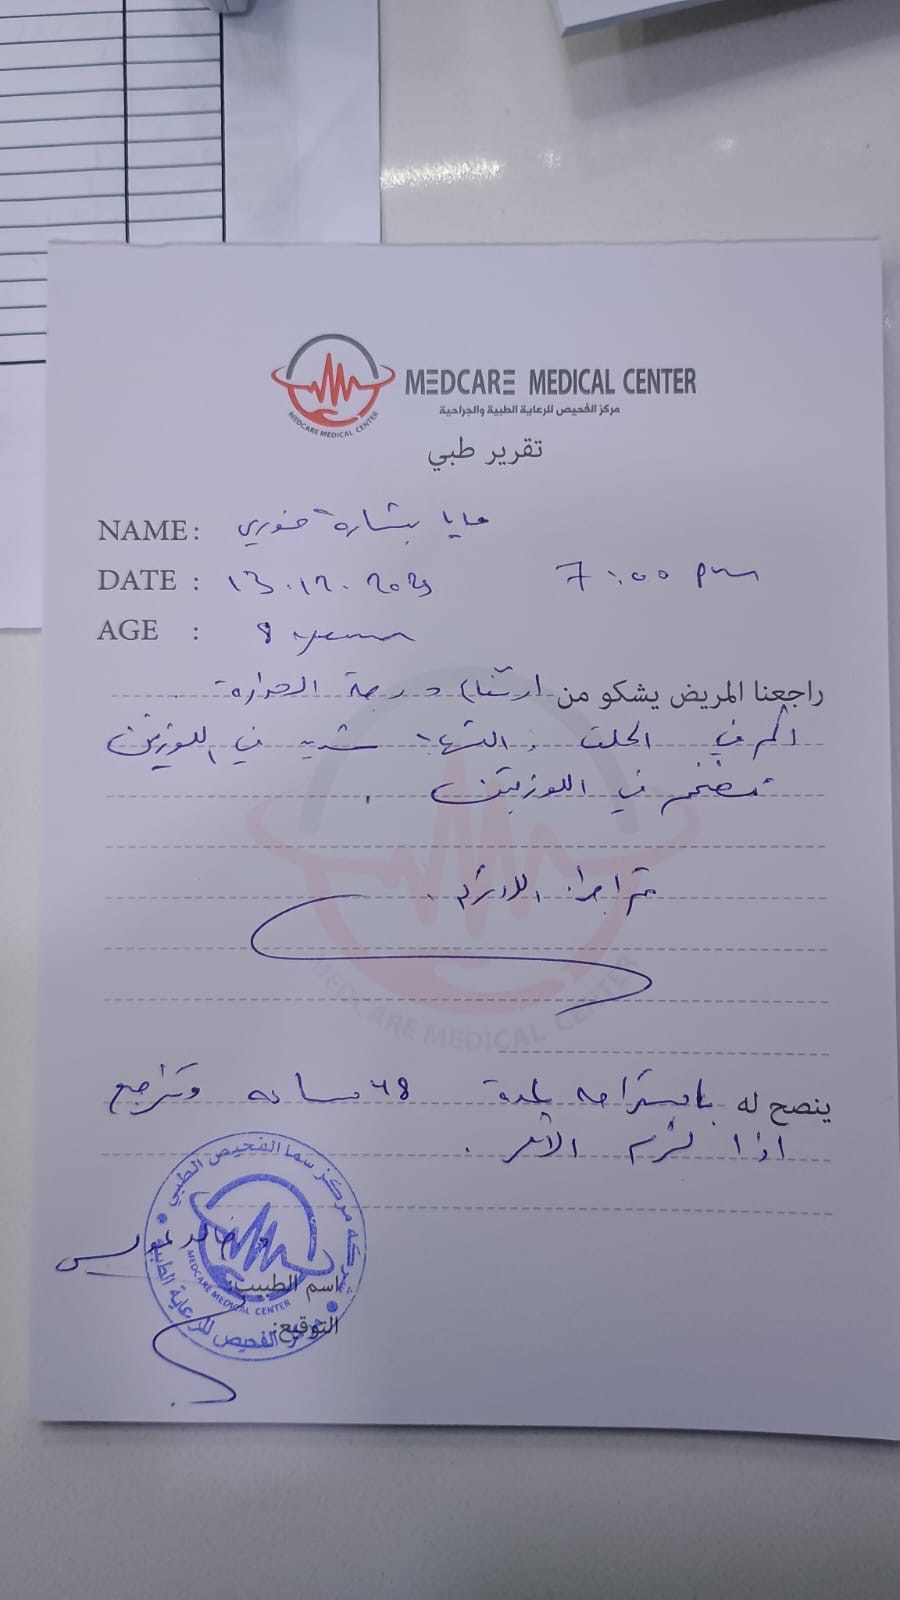 MEDCARE MEDICAL CENTER
مركز الفحيص للرعاية الطبية والجراحية
MEDCARE MEDICAL CENTER
تقرير طبي
NAME: مايا بشارة خوري
DATE : 13.12.2025 7:00 pm
AGE : 8 years
راجعنا المريض يشكو من ارتفاع درجة الحرارة.
الم في الحلق، التهاب شديد في اللوزتين
تضخم في اللوزتين.
تم اجراء اللازم.
MEDCARE MEDICAL CENTER
ينصح له باستراحه لمدة 48 ساعه وتراجع
اذا لزم الأمر.
شركة مركز سما الفحيص الطبي
MEDCARE MEDICAL CENTER
مركز الفحيص للرعاية الطبية
اسم الطبيب: د. خالد
التوقيع: